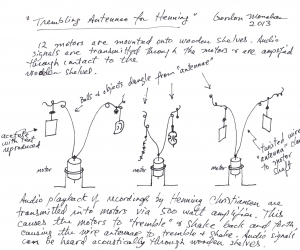 "Trembling Antennae for Henning" Gordon Monahan
2013
12 motors are mounted onto wooden shelves. Audio
signals are transmitted through the motors & are amplified
through contact to the
wooden shelves.
Bells & objects dangle from "antennae"
acetate
with text
reproduced
twisted wire
"antennae" clamp
to motor
shaft
motor
motor
motor
Audio playback of recordings by Henning Christiansen are
transmitted into motors via 500 watt amplifier. This
causes the motors to "tremble" & shake back and forth
causing the wire antennae to tremble & shake. Audio signals
can be heard acoustically through wooden shelves.